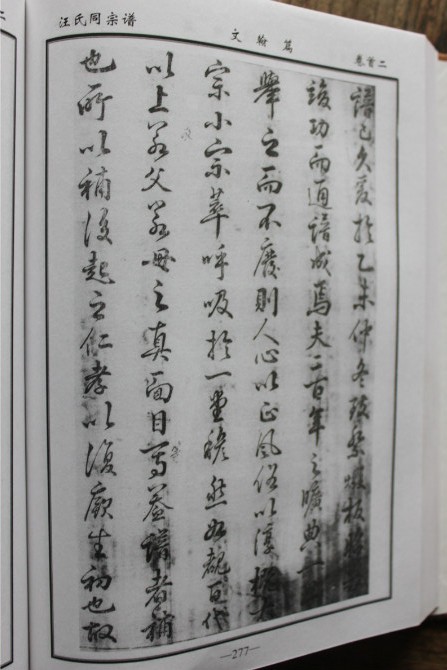 汪氏同宗谱
文翰篇
卷首二
譜已久爰於乙未仲冬
竣功而通譜成焉夫二百年之曠典一
舉之而不廢則人心以正風俗以淳
宗小宗萃呼吸於一堂然如覩百代
以上若父若母之真面目焉蓋譜者補
也所以補後起之仁孝以復厥生初也故
—277—